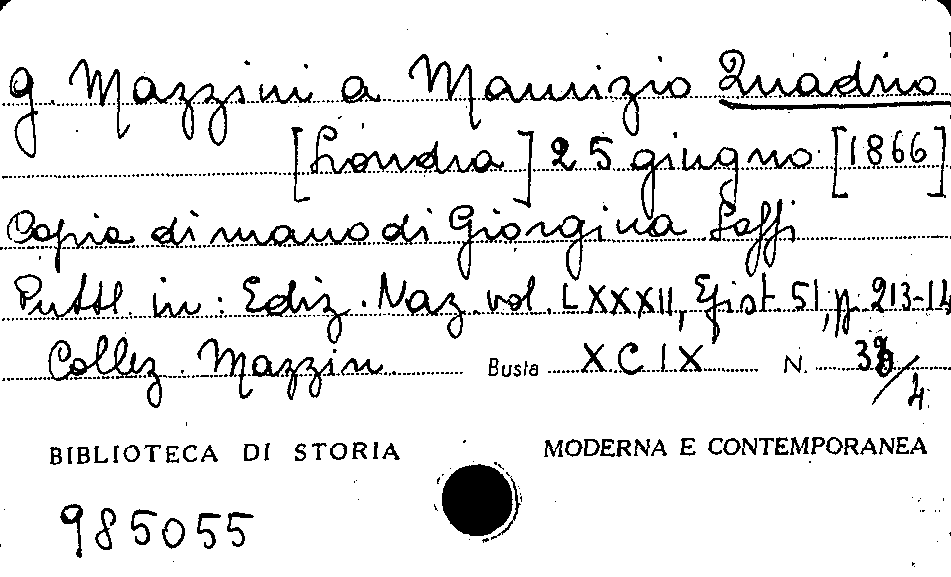 G. Mazzini a Maurizio Quadrio
[Londra] 25 giugno [1866]
Copia di mano di Giorgina Saffi
Pubbl. in: Ediz. Naz. vol. LXXXII, Epist. 51, p. 213-14
Collez. Mazzin. Busta XCIX N. /4
BIBLIOTECA DI STORIA MODERNA E CONTEMPORANEA
985055